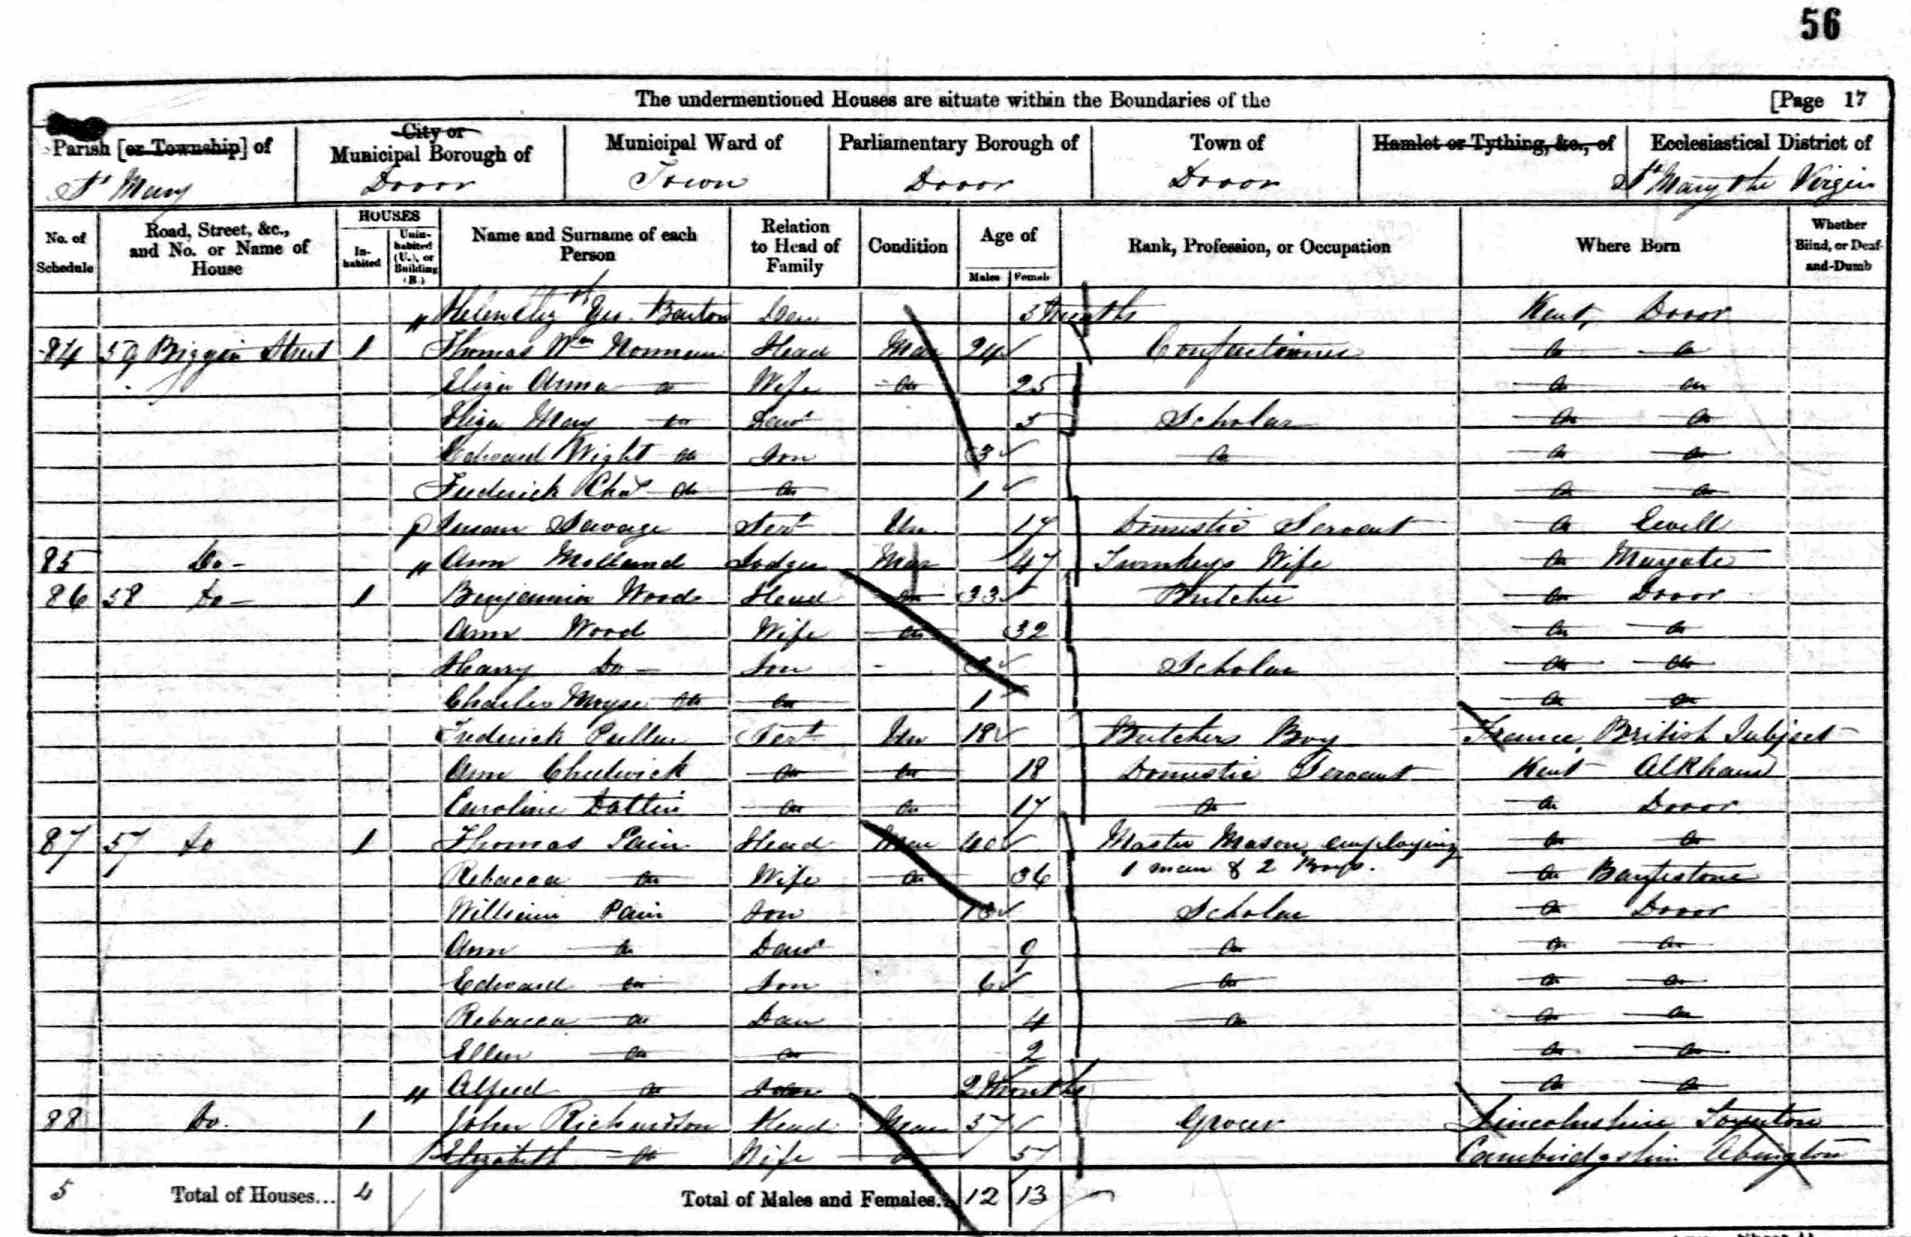 56
The undermentioned Houses are situate within the Boundaries of the [Page 17
Parish [or Township] of City or Municipal Borough of Municipal Ward of Parliamentary Borough of Town of Hamlet or Tything, &c., of Ecclesiastical District of
St Mary Dovor Town Dovor Dovor St Mary the Virgin
No. of Schedule Road, Street, &c., and No. or Name of House HOUSES Inhabited Uninhabited (U.), or Building (B.) Name and Surname of each Person Relation to Head of Family Condition Age of Males Females Rank, Profession, or Occupation Where Born Whether Blind, or Deaf-and-Dumb
Helen Eliz Geo. Benton Dau 3 Months Kent, Dovor
84 59 Biggin Street 1 Thomas Wm Norman Head Mar 24 Confectioner do do
Eliza Anna do Wife do 25 do do
Eliza Mary do Daur 5 Scholar do do
Edward Wight do Son 3 do do do
Frederick Chas do do 1 do do
Susan Savage Servt Un 17 Domestic Servant do Ewell
85 Do Ann Molland Lodger Mar 47 Turnkeys Wife do Margate
86 58 Do 1 Benjamin Wood Head do 33 Butcher do Dovor
Ann Wood Wife do 32 do do
Harry Do Son Scholar do do
Charles do do 1 do do
Frederick Pullen Servt Un 18 Butchers Boy France British Subject
Ann Chedwick do do 18 Domestic Servant Kent Alkham
Caroline do do 17 do do Dovor
87 57 do 1 Thomas Pain Head Mar 40 Master Mason employing do do
Rebecca do Wife do 36 1 man & 2 Boys. do
William Pain Son 10 Scholar do Dovor
Ann do Daur 9 do do do
Edward do Son 6 do do do
Rebecca do Dau 4 do do do
Ellen do do 2 do do
Alfred do Son 2 Months do do
88 Do. 1 John Richardson Head Mar 57 Grocer Lincolnshire Toynton
Elizabeth do Wife do 57 Cambridgshire Abington
5 Total of Houses... 4 Total of Males and Females.. 12 13